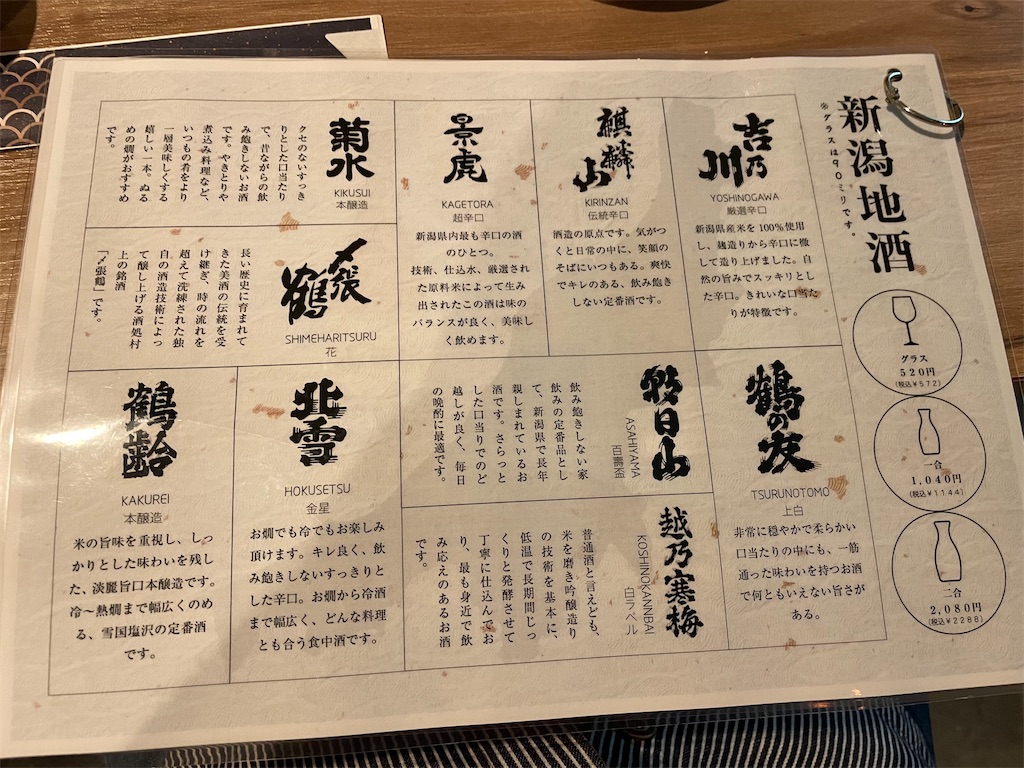 新潟地酒
※グラスは90ミリです。
グラス
520円
(税込¥572)
一合
1,040円
(税込¥1144)
二合
2,080円
(税込¥2288)
吉乃川
YOSHINOGAWA
厳選辛口
新潟県産米を100%使用
し、麹造りから辛口に徹
して造り上げました。自
然の旨みでスッキリとし
た辛口。きれいな口当た
りが特徴です。
麒麟山
KIRINZAN
伝統辛口
酒造の原点です。気がつ
くと日常の中に、笑顔の
そばにいつもある。爽快
でキレのある、飲み飽き
しない定番酒です。
景虎
KAGETORA
超辛口
新潟県内最も辛口の酒
のひとつ。
技術、仕込水、厳選され
た原料米によって生み
出されたこの酒は味の
バランスが良く、美味し
く飲めます。
菊水
KIKUSUI
本醸造
クセのないすっき
りとした口当たり
で、昔ながらの飲
み飽きしないお酒
です。やきとりや
煮込み料理など、
いつもの肴をより
一層美味しくする
嬉しい一本。ぬる
めの燗がおすすめ
です。
〆張鶴
SHIMEHARITSURU
花
長い歴史に育まれて
きた美酒の伝統を受
け継ぎ、時の流れを
超えて洗練された独
自の酒造技術によっ
て醸し上げる酒処村
上の銘酒
「〆張鶴」です。
鶴の友
TSURUNOTOMO
上白
非常に穏やかで柔らかい
口当たりの中にも、一筋
通った味わいを持つお酒
で何ともいえない旨さが
ある。
朝日山
ASAHIYAMA
百壽盃
飲み飽きしない家
飲みの定番品とし
て、新潟県で長年
親しまれているお
酒です。さらっと
した口当りでのど
越しが良く、毎日
の晩酌に最適です。
越乃寒梅
KOSHINOKANNBAI
白ラベル
普通酒と言えども、
米を磨き吟醸造り
の技術を基本に、
低温で長期間じっ
くりと発酵させて
丁寧に仕込んでお
り、最も身近で飲
み応えのあるお酒
です。
北雪
HOKUSETSU
金星
お燗でも冷でもお楽しみ
頂けます。キレ良く、飲
み飽きしないすっきりと
した辛口。お燗から冷酒
まで幅広く、どんな料理
とも合う食中酒です。
鶴齢
KAKUREI
本醸造
米の旨味を重視し、しっ
かりとした味わいを残し
た、淡麗旨口本醸造です。
冷〜熱燗まで幅広くのめ
る、雪国塩沢の定番酒
です。